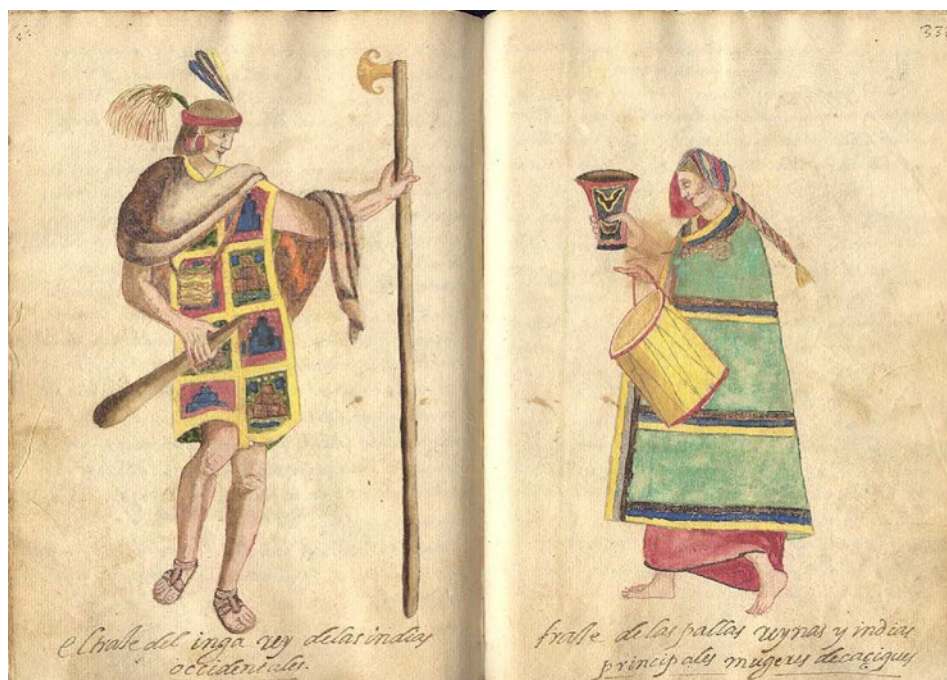 el traje del inga rey de las indias
occidentales.
traje de las pallas reynas y indias
principales mugeres de caçiques